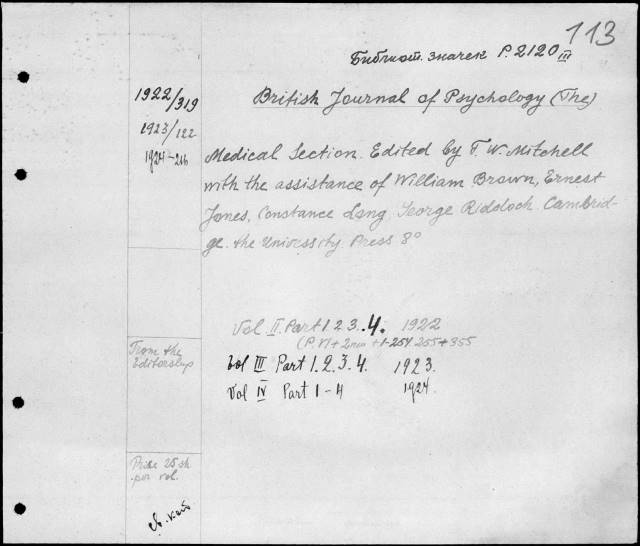 113
Библиот. значек P. 2120 III
1922/319
1923/122
1924-216
British Journal of Psychology (The)
Medical Section. Edited by T. W. Mitchell
with the assistance of William Brown, Ernest
Jones, Constance Long George Riddoch. Cambrid-
ge. the University Press 8°
Vol. II. Part 1 2 3. 4. 1922
(P. VI + 2 + 1-254 255 + 355
Vol III Part 1. 2. 3. 4. 1923.
Vol IV Part 1-4 1924.
From the
Editorship
Price 25 sh
per vol.